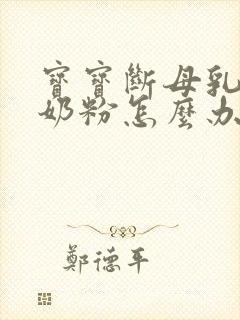 寶寶斷母乳
奶粉怎麼办
鄭德平